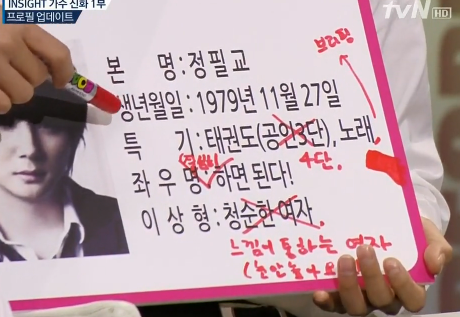 INSIGHT 가수 신화 1부
프로필 업데이트
tvN HD
브리핑
본 명 : 정필교
생년월일 : 1979년 11월 27일
특 기 : 태권도(공인3단), 노래,
4단.
좌 우 명 : 하면 된다!
이 상 형 : 청순한 여자
느낌이 통하는 여자